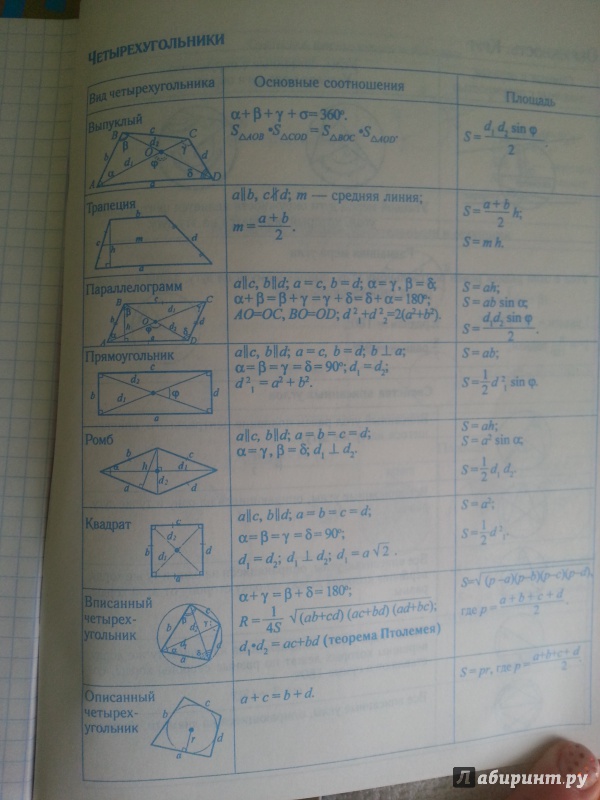 Четырехугольники
Вид четырехугольника	Основные соотношения	Площадь
Выпуклый
α + β + γ + σ = 360°.
S△AOB • S△COD = S△BOC • S△AOD.
S = d₁ d₂ sin φ / 2.
Трапеция
a∥b, c∦d; m — средняя линия;
m = a + b / 2.
S = a + b / 2 h;
S = m h.
Параллелограмм
a∥c, b∥d; a = c, b = d; α = γ, β = δ;
α + β = β + γ = γ + δ = δ + α = 180°;
AO=OC, BO=OD; d²₁+d²₂=2(a²+b²).
S = ah;
S = ab sin α;
S = d₁d₂ sin φ / 2.
Прямоугольник
a∥c, b∥d; a = c, b = d; b ⊥ a;
α = β = γ = δ = 90°; d₁ = d₂;
d²₁ = a² + b².
S = ab;
S = 1/2 d²₁ sin φ.
Ромб
a∥c, b∥d; a = b = c = d;
α = γ, β = δ; d₁ ⊥ d₂.
S = ah;
S = a² sin α;
S = 1/2 d₁ d₂.
Квадрат
a∥c, b∥d; a = b = c = d;
α = β = γ = δ = 90°;
d₁ = d₂; d₁ ⊥ d₂; d₁ = a √2 .
S = a²;
S = 1/2 d²₁.
Вписанный
четырех-
угольник
α + γ = β + δ = 180°;
R = 1/4S √(ab+cd) (ac+bd) (ad+bc);
d₁•d₂ = ac+bd (теорема Птолемея)
S=√(p–a)(p–b)(p–c)(p–d),
где p = a + b + c + d / 2.
Описанный
четырех-
угольник
a + c = b + d.
S = pr, где p = a+b+c+d / 2.
Лабиринт.ру